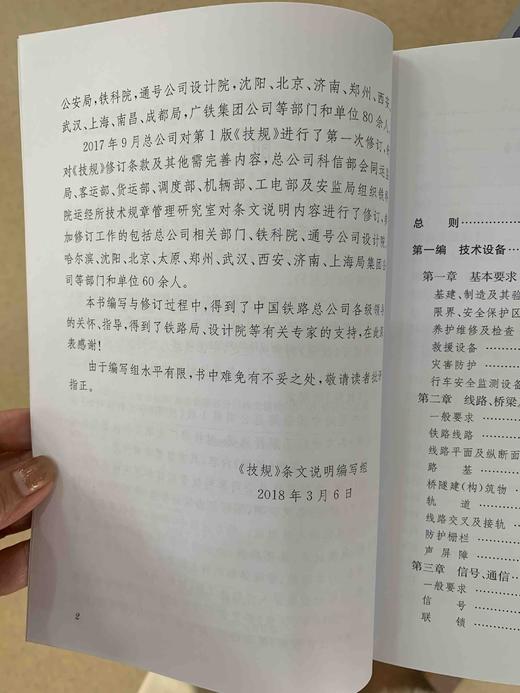 公安局,铁科院,通号公司设计院,沈阳、北京、济南、郑州、西安、
武汉、上海、南昌、成都局,广铁集团公司等部门和单位 80 余人。
2017 年 9 月总公司对第 1 版《技规》进行了第一次修订,
对《技规》修订条款及其他需完善内容,总公司科信部会同运
局、客运部、货运部、调度部、机辆部、工电部及安监局组织铁科
院运经所技术规章管理研究室对条文说明内容进行了修订,
加修订工作的包括总公司相关部门、铁科院、通号公司设计院,
哈尔滨、沈阳、北京、太原、郑州、武汉、西安、济南、上海局集团
司等部门和单位 60 余人。
本书编写与修订过程中,得到了中国铁路总公司各级领
的关怀、指导,得到了铁路局、设计院等有关专家的支持,在此
表感谢!
由于编写组水平有限,书中难免有不妥之处,敬请读者批
指正。
《技规》条文说明编写组
2018 年 3 月 6 日
2
总 则
第一编 技术设备
第一章 基本要求
基建、制造及其验
限界、安全保护区
养护维修及检查
救援设备
灾害防护
行车安全监测设备
第二章 线路、桥梁
一般要求
铁路线路
线路平面及纵断面
路 基
桥隧建(构)筑物
轨 道
线路交叉及接轨
防护栅栏
声 屏 障
第三章 信号、通信
一般要求
信 号
联 锁